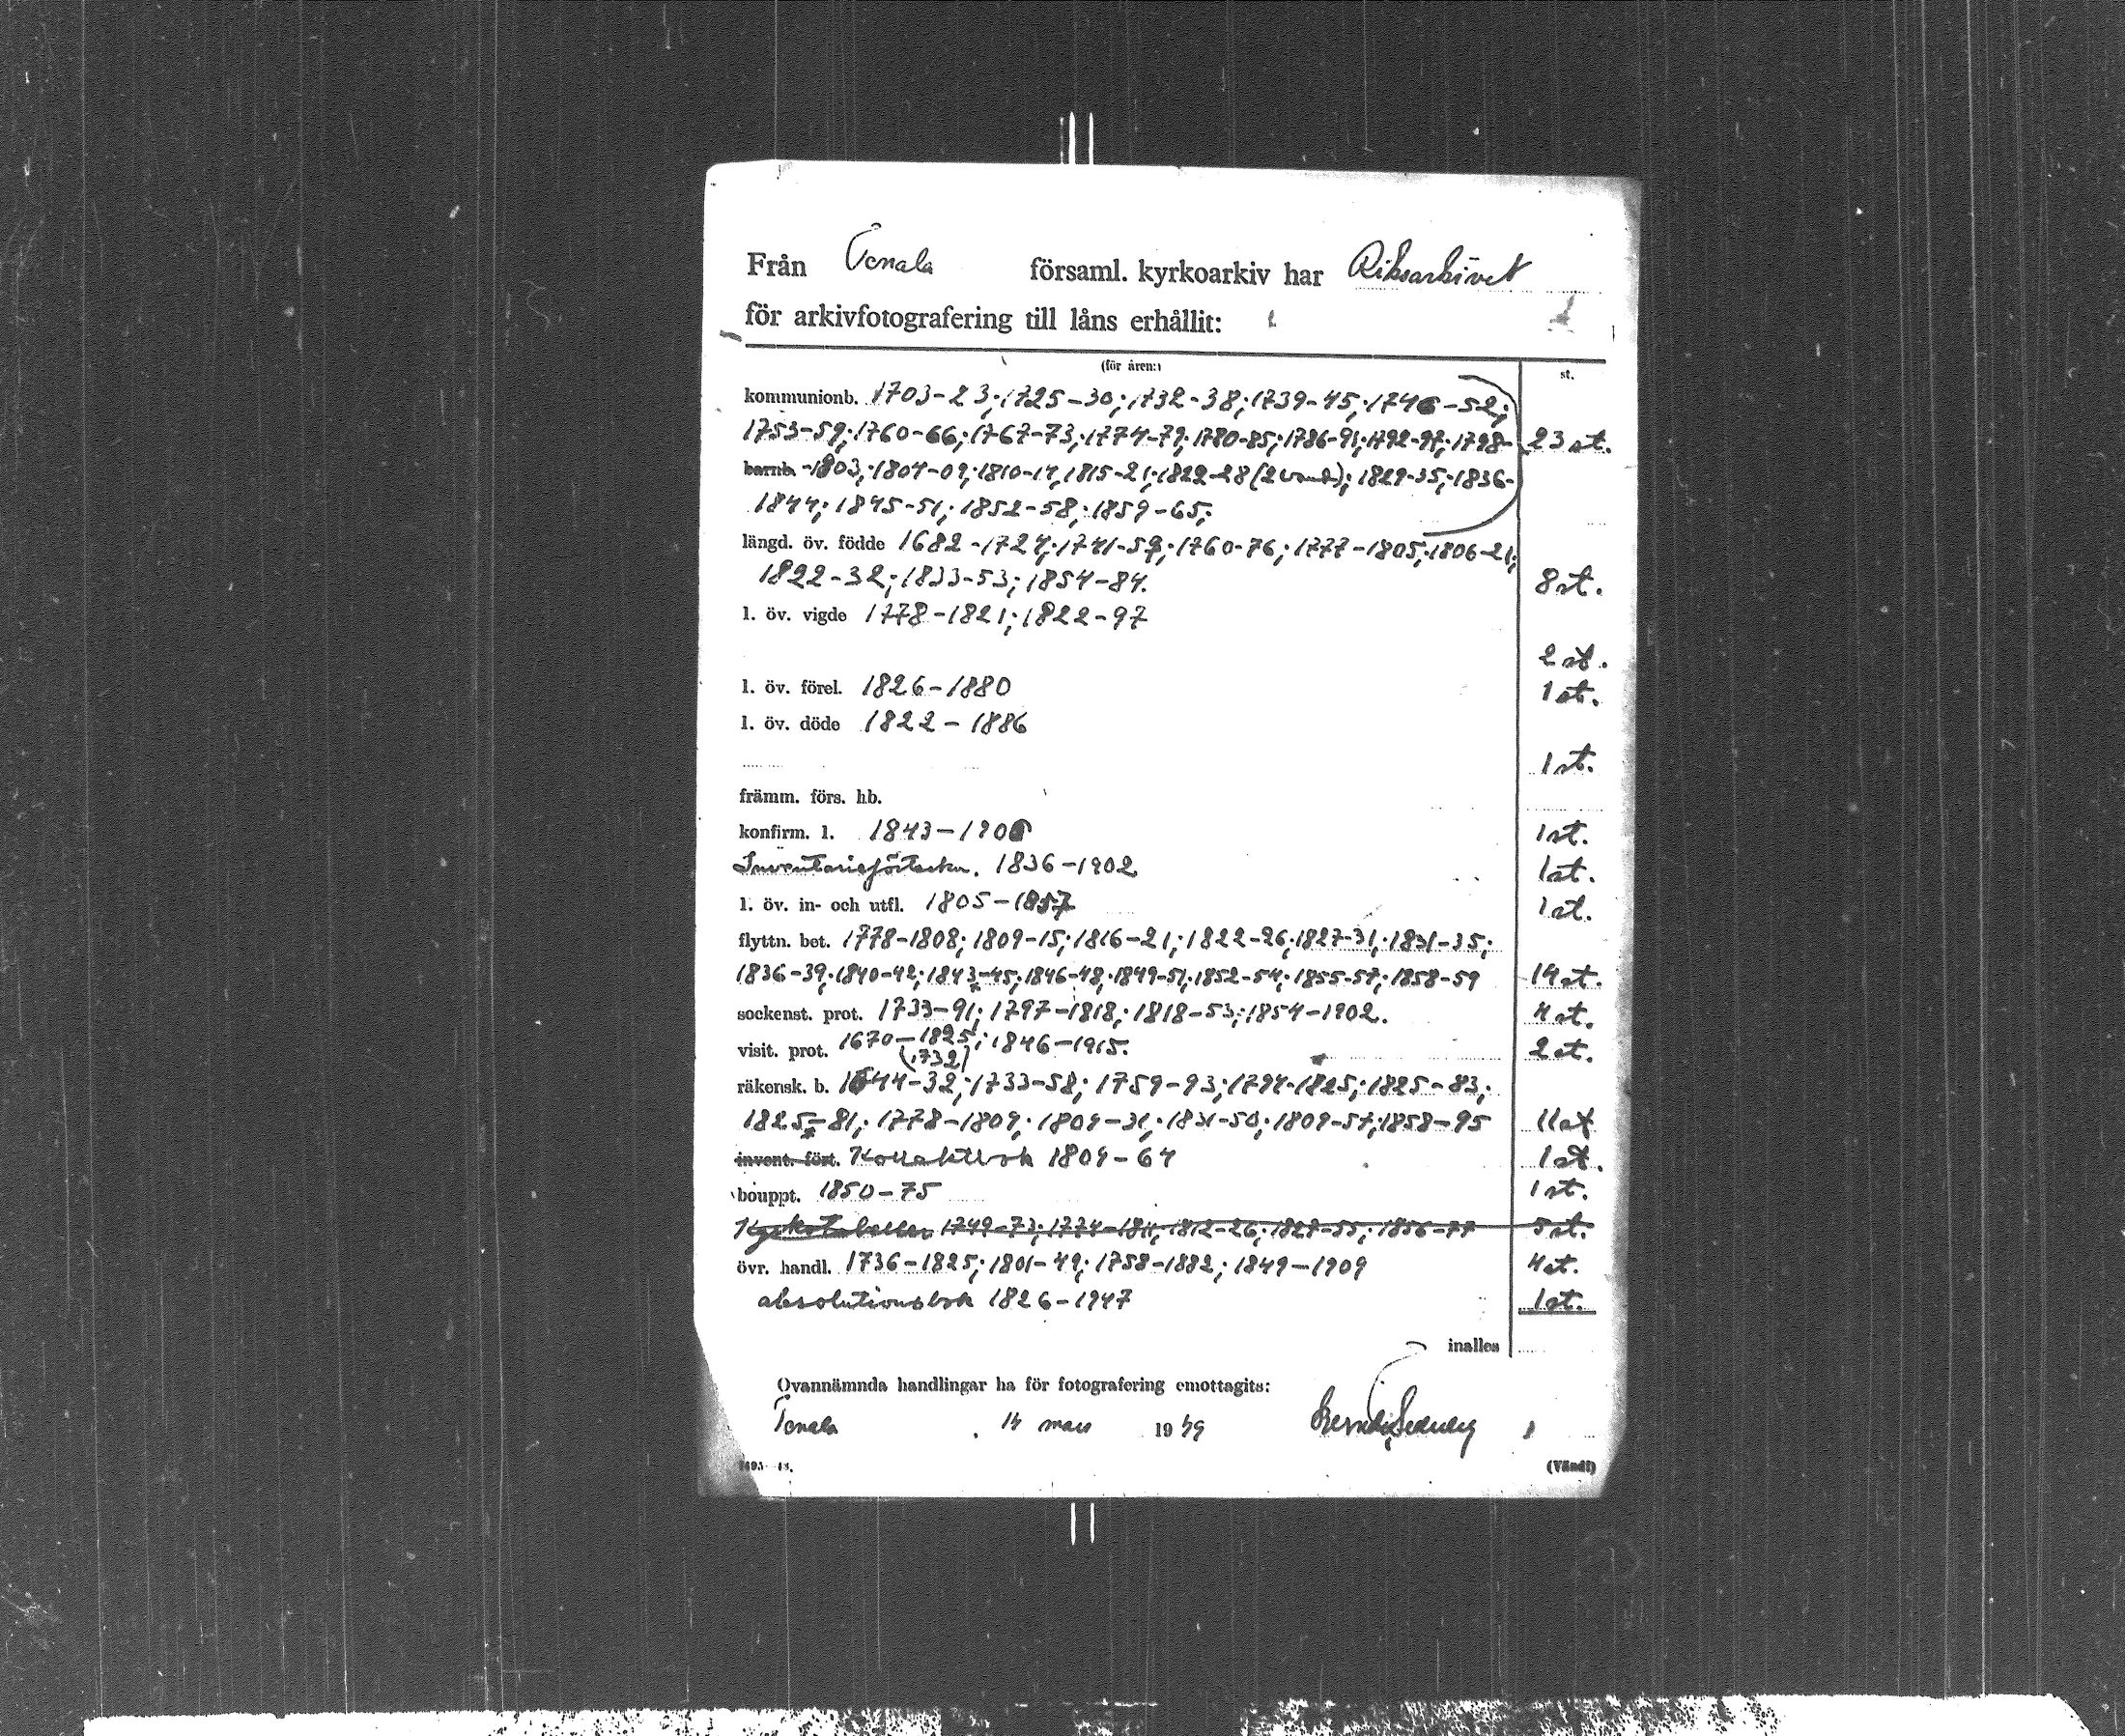 Från Tenala församl. kyrkoarkiv har Riksarkivet
för arkivfotografering till låns erhållit:
(för åren:) st.
kommunionb. 1703-23; 1725-30; 1732-38; 1739-45; 1746-52;
1753-59; 1760-66; 1767-73; 1774-79; 1780-85; 1786-91; 1792-97; 1798- 23 st.
barnb. -1803; 1804-09; 1810-14; 1815-21; 1822-28 (2 band); 1829-35; 1836-
1844; 1845-51; 1852-58; 1859-65;
längd. öv. födde 1682-1724; 1741-59; 1760-76; 1777-1805; 1806-21;
1822-32; 1833-53; 1854-84. 8 st.
l. öv. vigde 1778-1821; 1822-97
2 st.
l. öv. förel. 1826-1880 1 st.
l. öv. döde 1822-1886
1 st.
främm. förs. hb.
konfirm. l. 1843-1906 1 st.
Inventarieförteckn. 1836-1902 1 st.
l. öv. in- och utfl. 1805-1857 1 st.
flyttn. bet. 1778-1808; 1809-15; 1816-21; 1822-26; 1827-31; 1831-35;
1836-39; 1840-42; 1843-45; 1846-48; 1849-51; 1852-54; 1855-57; 1858-59 14 st.
sockenst. prot. 1733-91; 1797-1818; 1818-53; 1854-1902. 4 st.
visit. prot. 1670-1825; 1846-1915. 2 st.
(1732)
räkensk. b. 1644-32; 1733-58; 1759-93; 1794-1825; 1825-83;
1825-81; 1778-1809; 1809-31; 1831-50; 1809-57; 1858-95 11 st
invent. fört. Kollektbok 1809-64 1 st.
bouppt. 1850-75 1 st.
Kyrkotabeller 1749-73; 1774-1811; 1812-26; 1827-55; 1856-77 5 st.
övr. handl. 1736-1825; 1801-49; 1758-1882; 1849-1909 4 st.
absolutionsbok 1826-1947 1 st.
inalles
Ovannämnda handlingar ha för fotografering emottagits:
Tenala 14 mars 1949
(Vänd!)